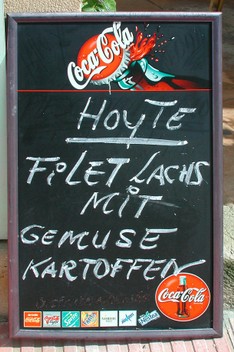 Coca-Cola
HOYTE
FiLET LACHS
MiT
GEMUSE
KARTOFFEN
Coca-Cola